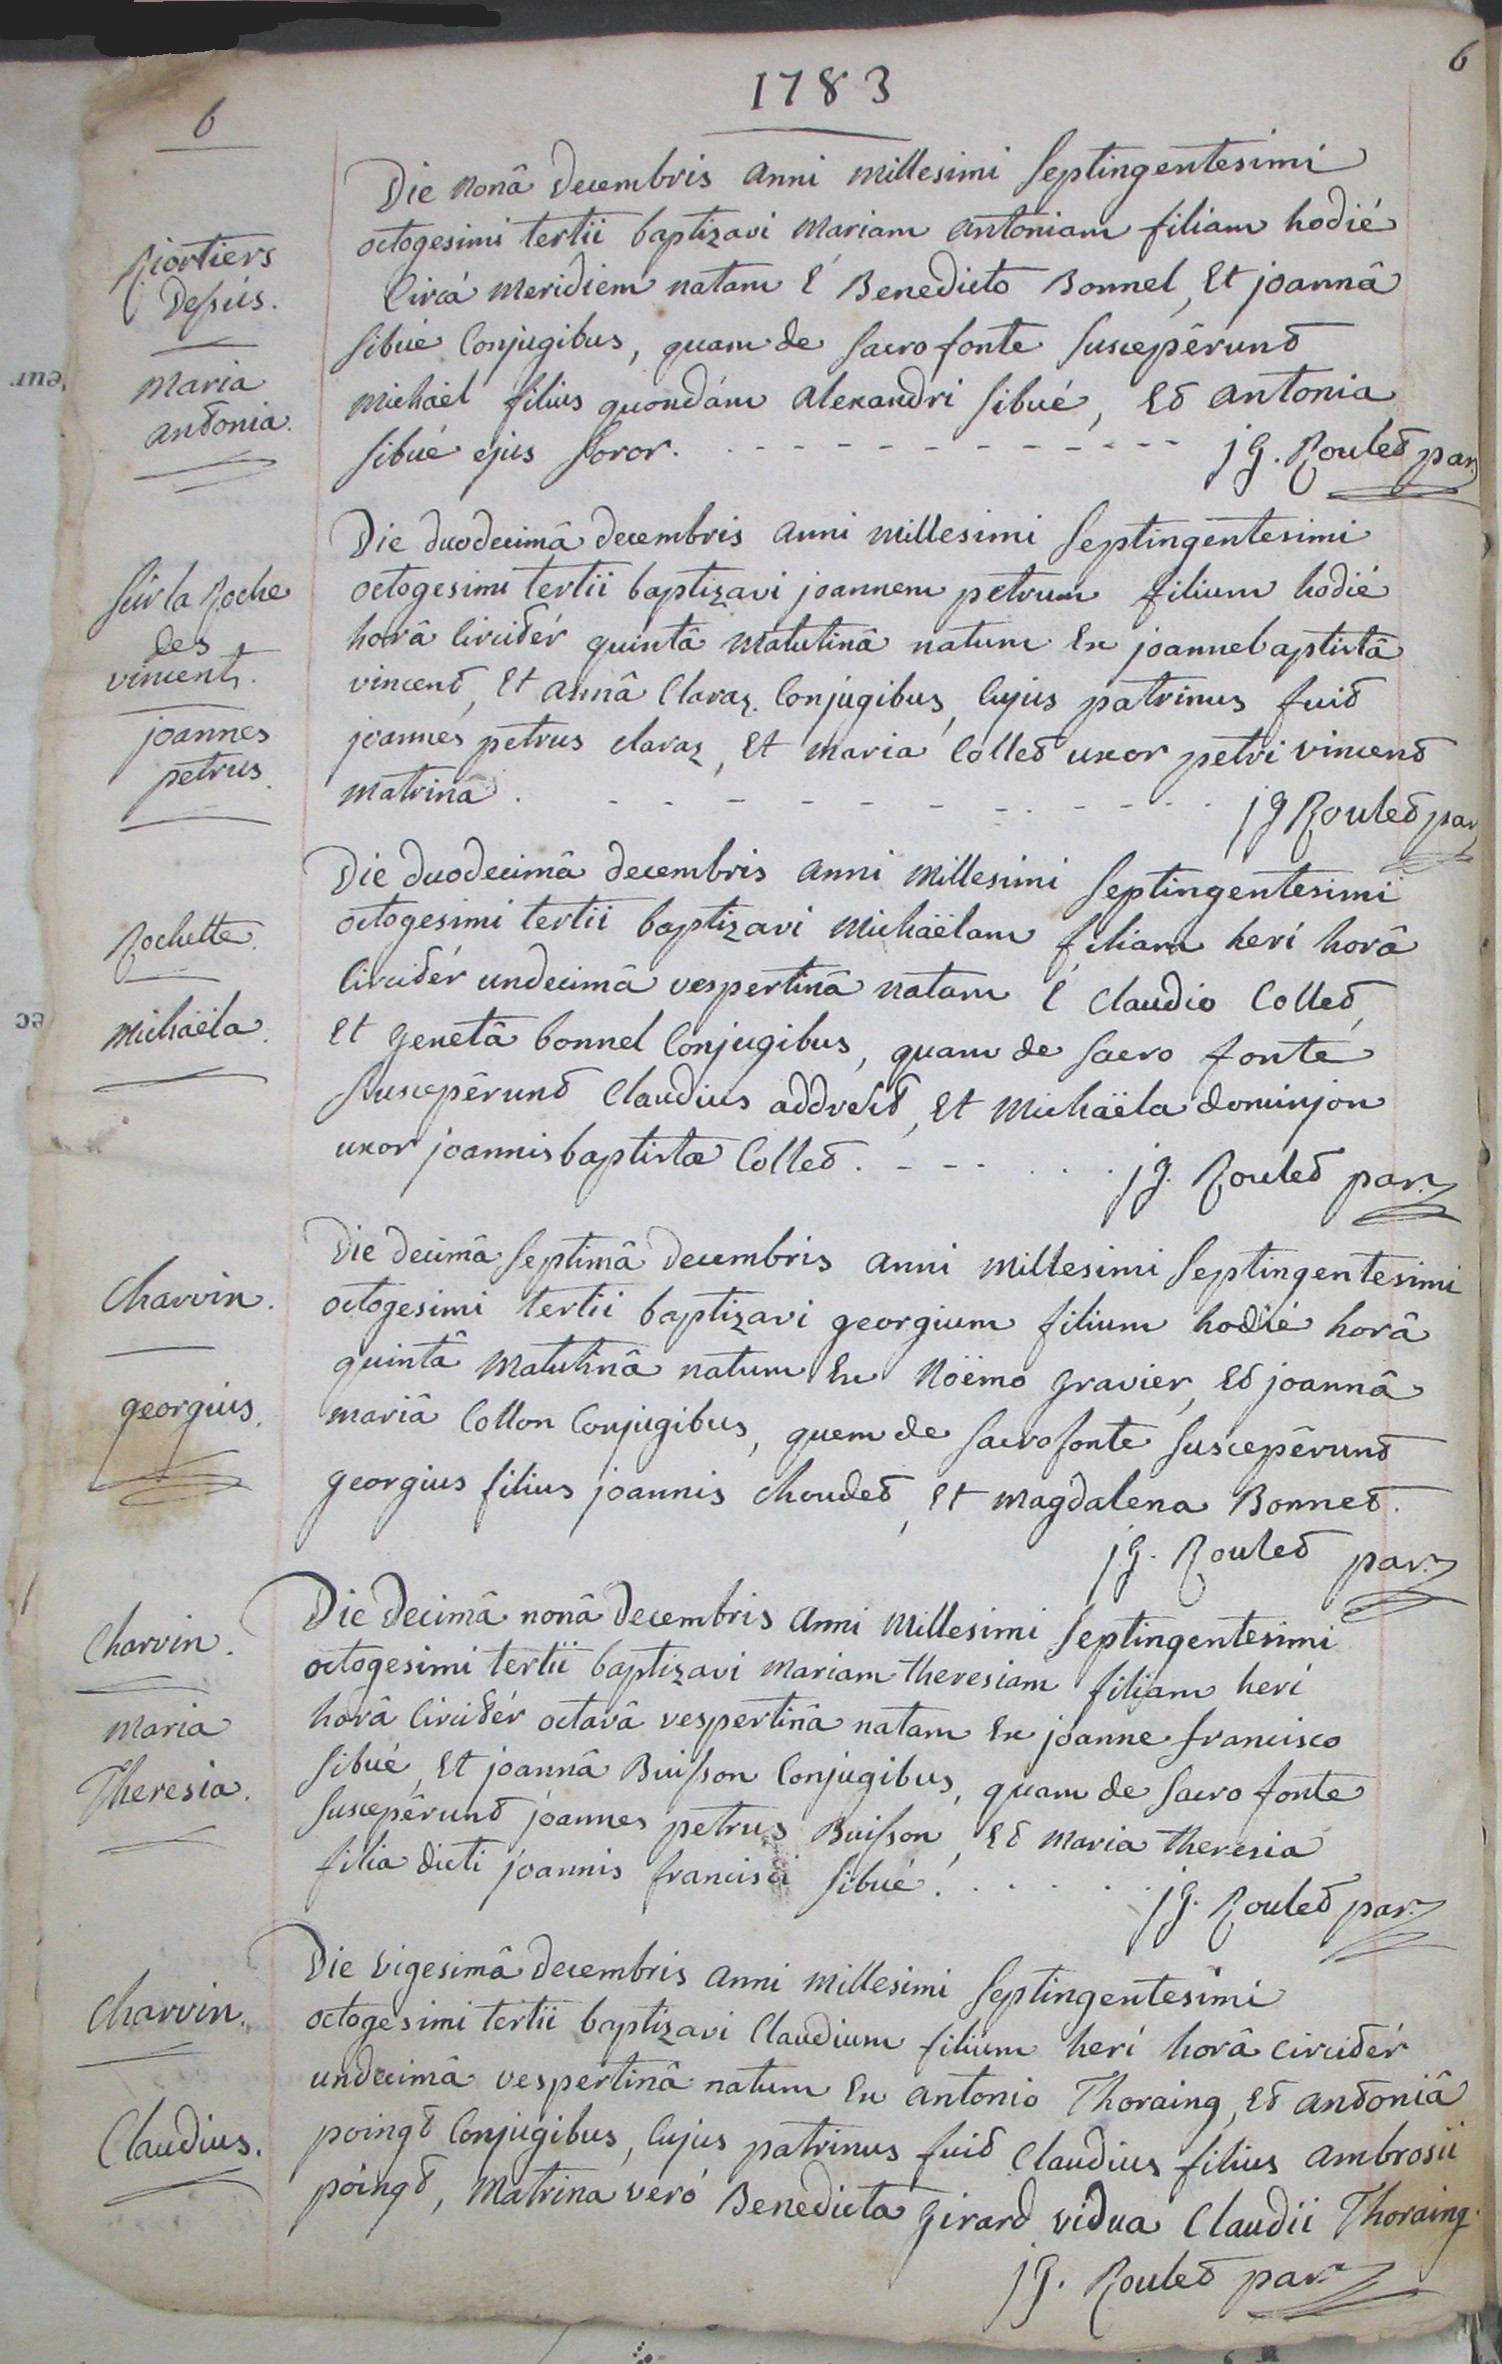 1783
6
6
Riortiers
Dessùs.
maria
antonia.
Die nonâ decembris anni millesimi septingentesimi
octogesimi tertii baptizavi mariam antoniam filiam hodié
circà meridiem natam é Benedicto Bonnel, et joannâ
sibué conjugibus, quam de sacro fonte suscepêrunt
michäel filius quondám alexandri sibué, et antonia
sibué ejus soror. - - - - - - - - - - - - j G. Roulet par.
sur la Roche
des
vincent.
joannes
petrus.
Die duodecimâ decembris anni millesimi septingentesimi
octogesimi tertii baptizavi joannem petrum filium hodié
horâ circitér quintâ matutinâ natum ex joannebaptistâ
vincent, et annâ Claraz conjugibus, cujus patrinus fuit
joannes petrus claraz, et maria collet uxor petri vincent
matrina. - - - - - - - - - - - j G Roulet par
Rochette.
michäela.
Die duodecimâ decembris anni millesimi septingentesimi
octogesimi tertii baptizavi michäëlam filiam herí horâ
circitér undecimâ vespertinâ natam é claudio collet,
et genetâ bonnel conjugibus, quam de sacro fonte
suscepêrunt claudius addveit, et michäëla dominjon
uxor joannisbaptistæ collet. - - - . . . j g. Roulet par.
Charvin.
georgius.
Die decimâ septimâ decembris anni millesimi septingentesimi
octogesimi tertii baptizavi georgium filium hodié horâ
quintâ matutinâ natum ex Nöëmo gravier, et joannâ
mariâ collon conjugibus, quem de sacro fonte suscepêrunt
georgius filius joannis choudet, et magdalena Bonnet.
j. G. Roulet par.
Charvin.
maria
Theresia.
Die decimâ nonâ decembris anni millesimi septingentesimi
octogesimi tertii baptizavi mariam theresiam filiam herí
horâ circitér octavâ vespertinâ natam ex joanne francisco
sibué, et joannâ Buisson conjugibus, quam de sacro fonte
suscepêrunt joannes petrus Buisson, et maria theresia
filia dicti joannis francisci sibué. . . . . . j G. Roulet par.
Charvin.
Claudius.
Die vigesimâ decembris anni millesimi septingentesimi
octogesimi tertii baptizavi claudium filium herí horâ circitér
undecimâ vespertinâ natum ex antonio Thoraing, et antoniâ
poingt conjugibus, cujus patrinus fuit claudius filius ambrosii
poingt, matrina veró Benedicta girard vidua claudii Thoraing.
j G. Roulet par.